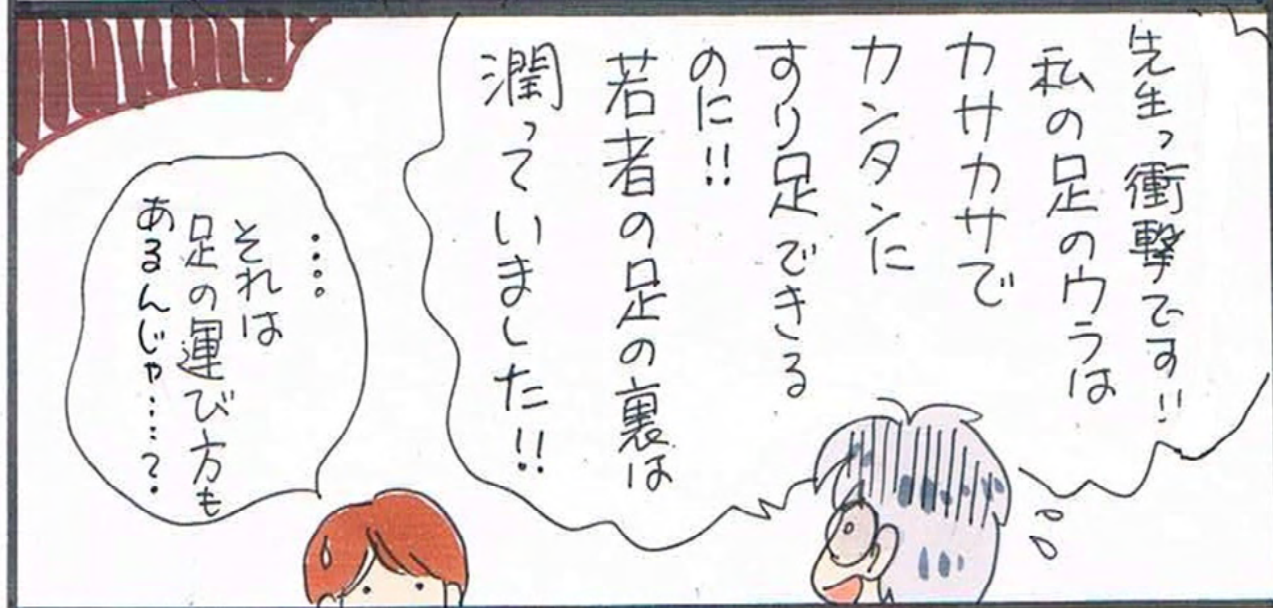 先生っ衝撃です!!
私の足のウラは
カサカサで
カンタンに
すり足できる
のに!!
若者の足の裏は
潤っていました!!
・・・・
それは
足の運び方も
あるんじゃ・・・・?